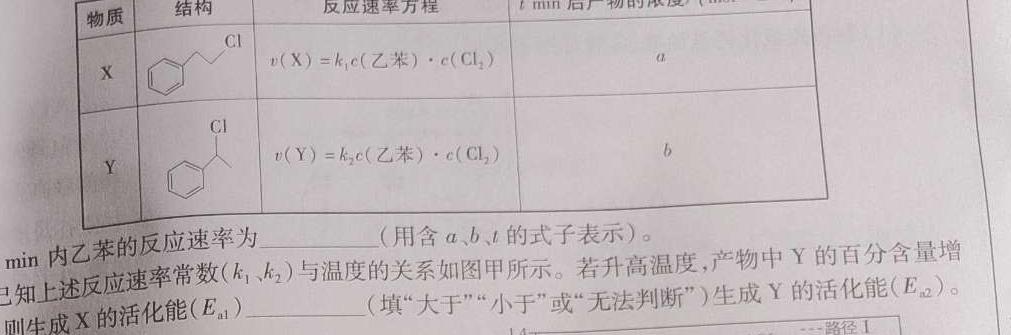 物质 结构 反应速率方程 t min 后产物的浓度
X Cl v(X)=k₁c(乙苯)·c(Cl₂) a
Y Cl v(Y)=k₂c(乙苯)·c(Cl₂) b
min 内乙苯的反应速率为________(用含 a、b、t 的式子表示)。
已知上述反应速率常数(k₁、k₂)与温度的关系如图甲所示。若升高温度,产物中 Y 的百分含量增
则生成 X 的活化能(Eₐ₁)________(填“大于”“小于”或“无法判断”)生成 Y 的活化能(Eₐ₂)。
1.4 ---路径 I